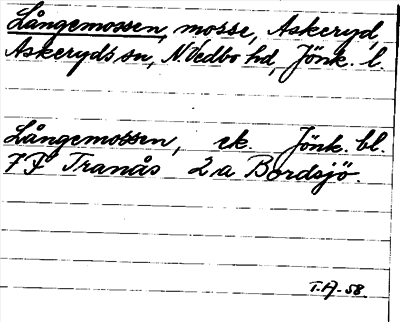 Långemossen, mosse, Askeryd,
Askeryds sn, N. Vedbo hd, Jönk. l.
Långemossen, ek. Jönk. bl.
7 F Tranås 2a Bordsjö.
T.A. 58